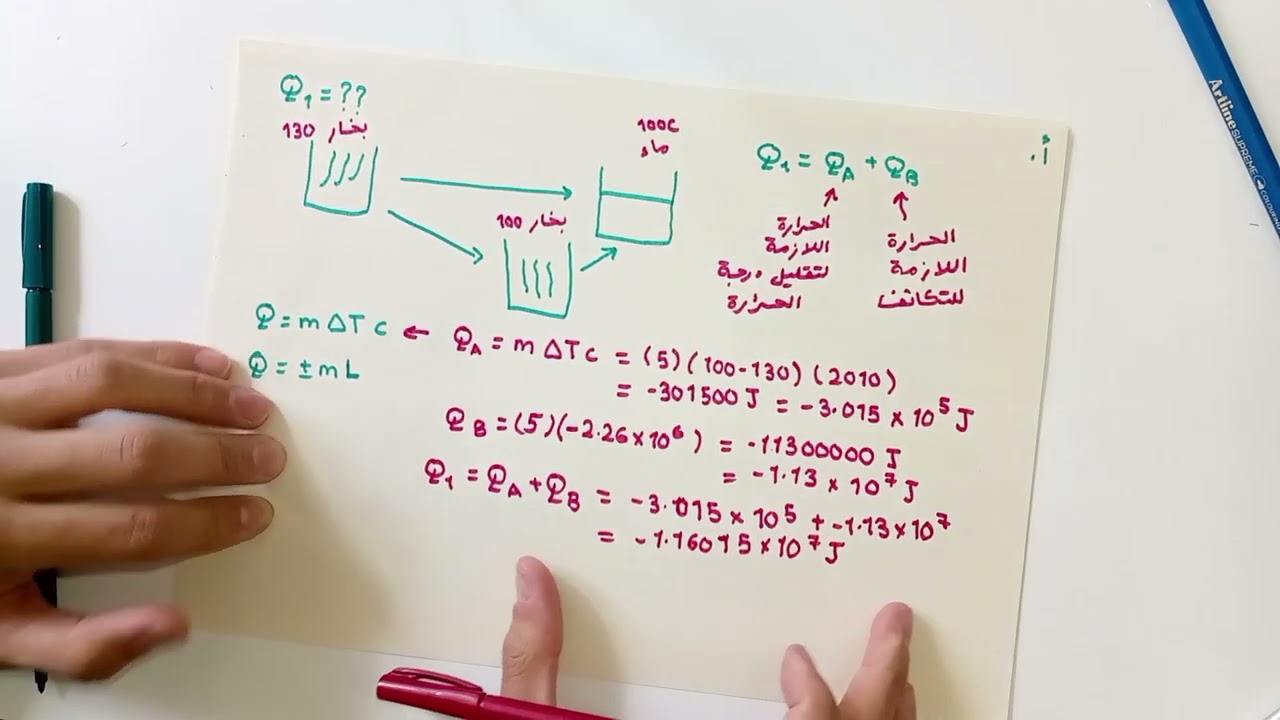 أ.
Q1 = ??
بخار 130
100C
ماء
بخار 100
Q1 = QA + QB
الحرارة
اللازمة
لتقليل درجة
الحرارة
الحرارة
اللازمة
للتكاثف
Q = m ΔT c ← QA = m ΔT c = (5)(100-130)(2010)
= -301500 J = -3.015 × 10^5 J
Q = ± m L
QB = (5)(-2.26×10^6) = -11300000 J
= -1.13 × 10^7 J
Q1 = QA + QB = -3.015 × 10^5 + -1.13 × 10^7
= -1.16015 × 10^7 J
Artline SUPREME